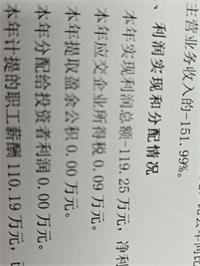 主营业务收入的-151.99%。
、利润实现和分配情况
本年实现利润总额-119.25万元，净利
本年应交企业所得税0.09万元。
本年提取盈余公积0.00万元。
本年分配给投资者利润0.00万元。
本年计提的职工薪酬110.19万元，